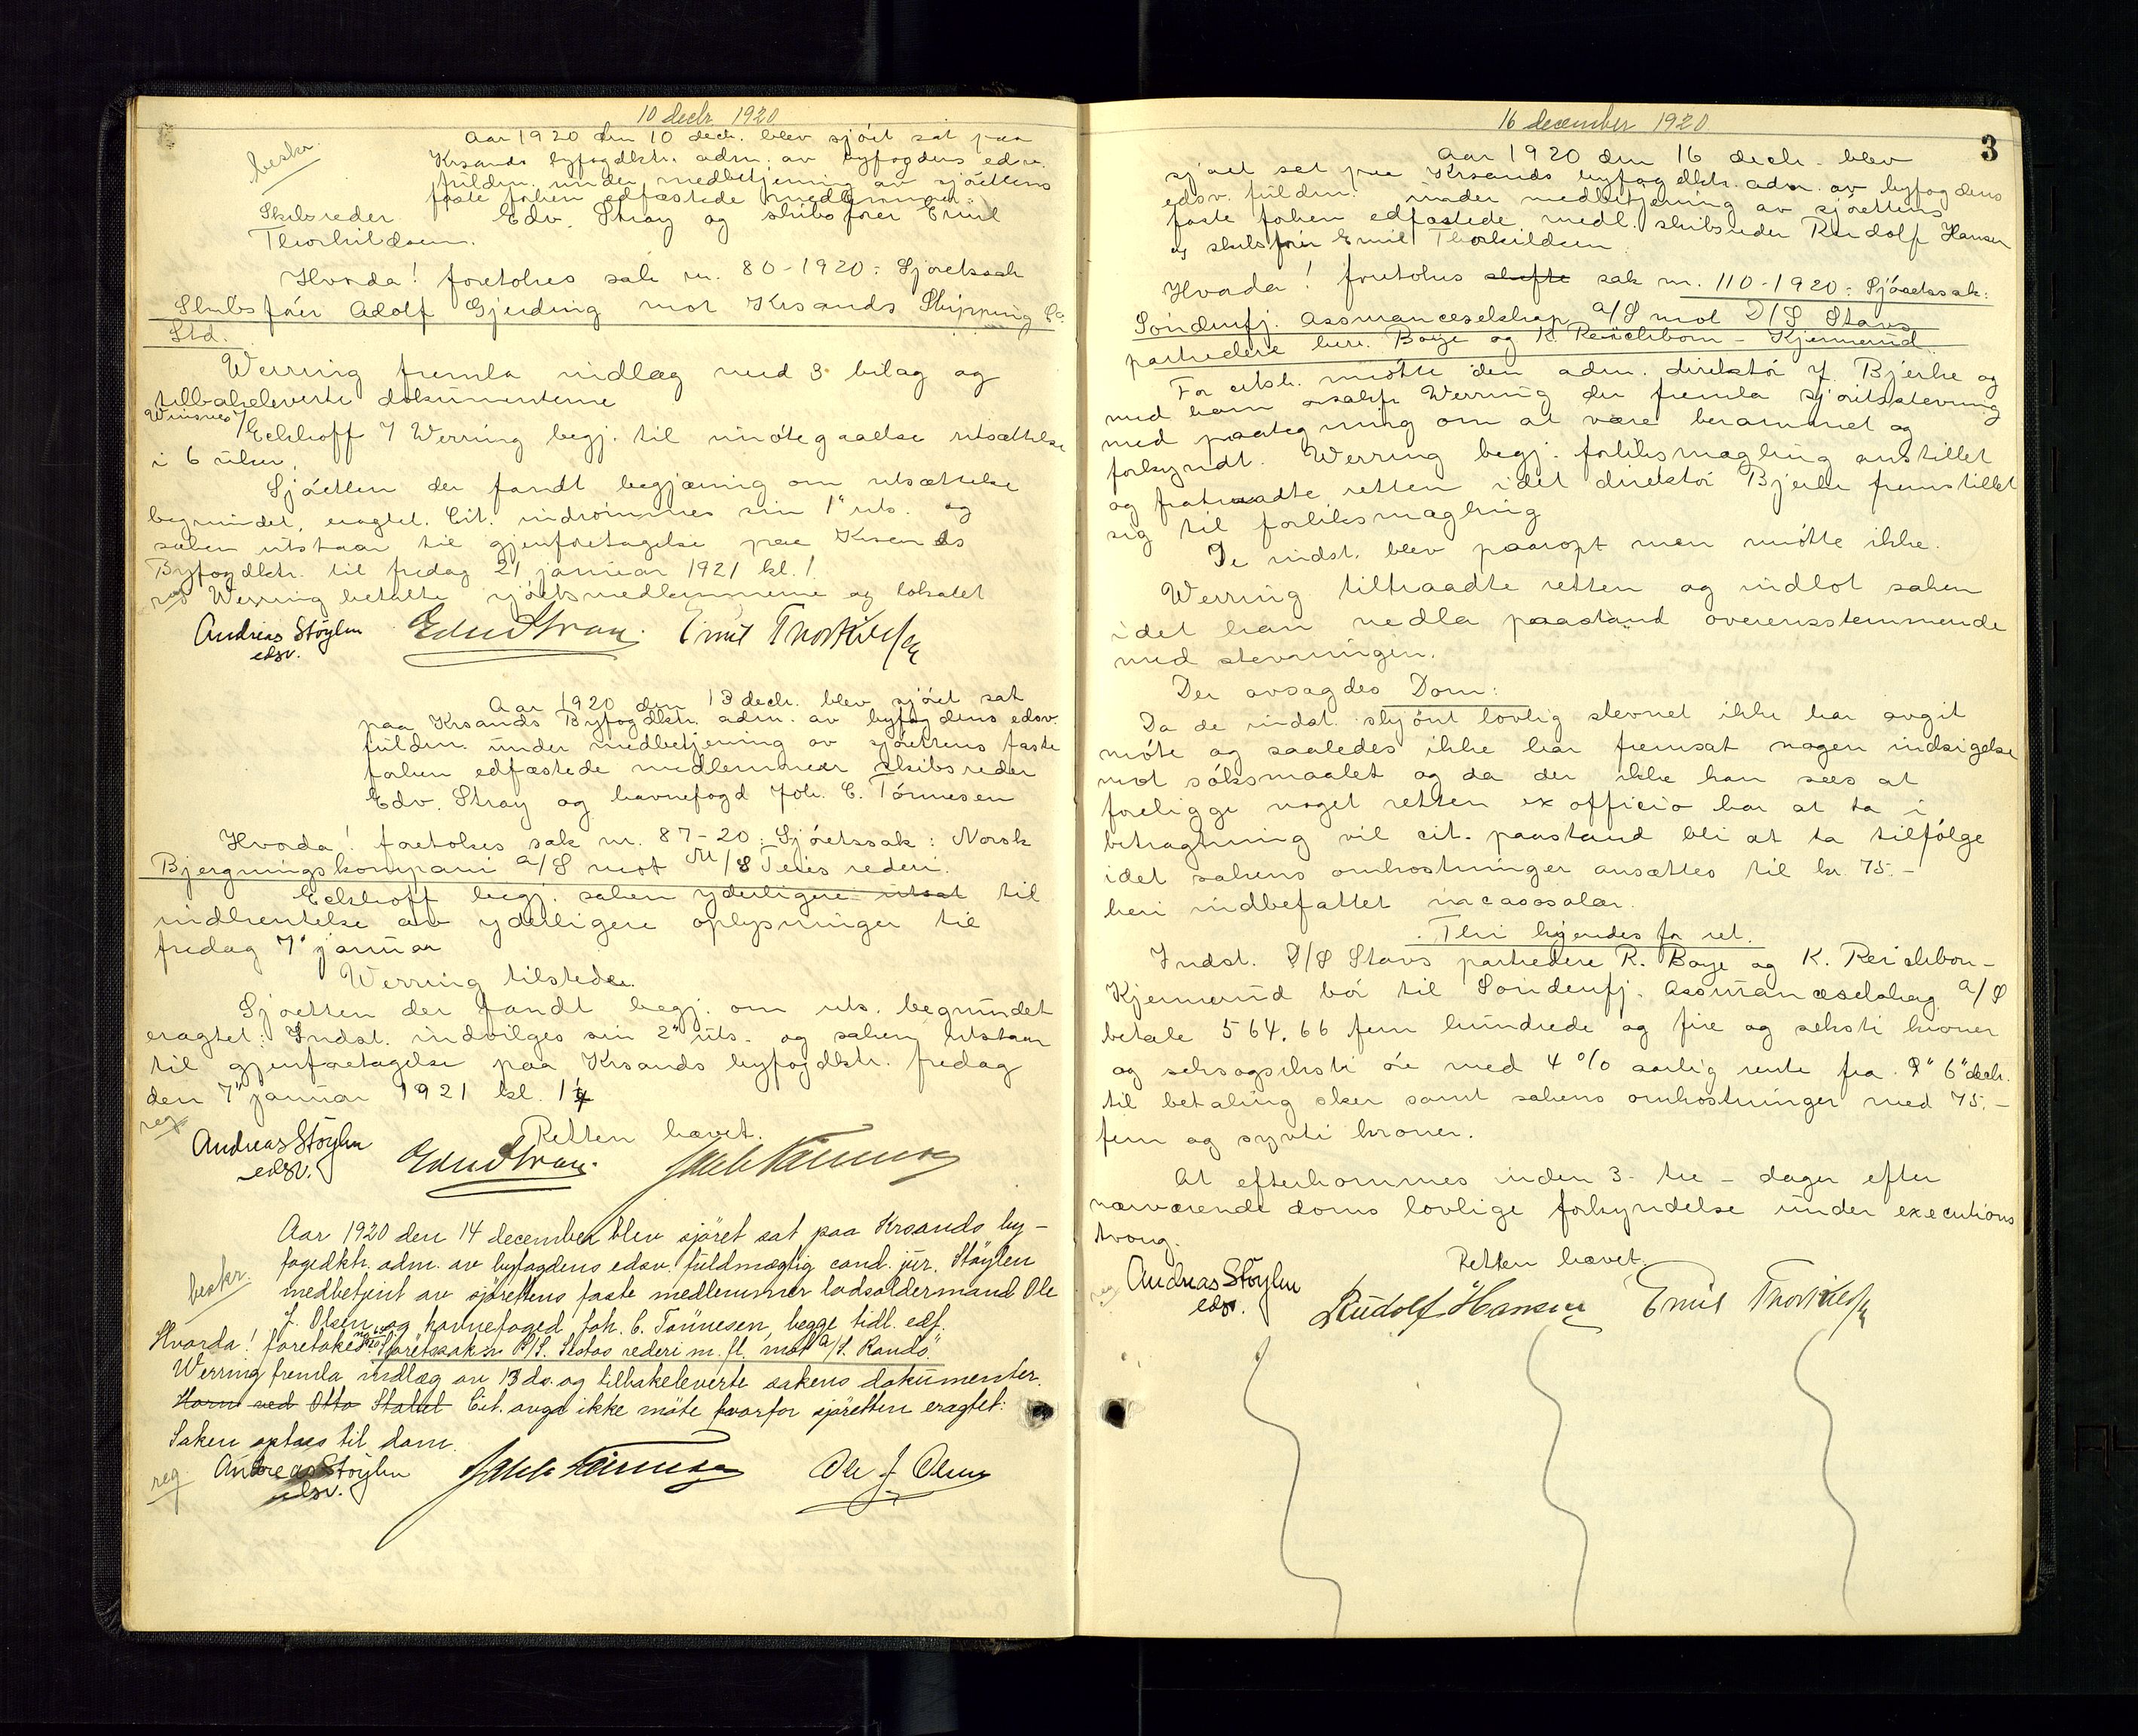 10 decbr. 1920
Aar 1920 den 10 decb. blev sjöret sat paa
beskr.
Krsands byfogdktr. adm. av byfogdens edsv.
fuldm. under medbetjening av sjörettens
faste forhen edfæstede medlemmer
Skibsreder Edv. Stray og skibsförer Emil
Thorkildsen.
Hvorda! foretokes sak nr. 80-1920: Sjöretssak
Skibsförer Adolf Gjerding mot Krsands Shipping Co.
Ltd.
Werring fremla indlæg med 3 bilag og
tilbakeleverte dokumenterne
Eckhoff f/ Werring begj. til imötegaaelse utsættelse
i 6 uker.
Sjöretten der fandt begjæring om utsættelse
begrundet, eragtet. Cit. indrömmes sin 1ste uts. og
saken utstaar til gjenforetagelse paa Krsands
Byfogdktr. til fredag 21 januar 1921 kl. 1.
reg Werring betalte sjöretsmedlemmerne og lokalet
Andreas Stöylen Edv Stray. Emil Thorkildsen
edsv.
Aar 1920 den 13 decb. blev sjöret sat
paa Krsands Byfogdktr. adm. av byfogdens edsv.
fuldm. under medbetjening av sjörettens faste
forhen edfæstede medlemmer skibsreder
Edv. Stray og havnefogd Joh. C. Tönnesen
Hvorda! foretokes sak nr. 87-20: Sjöretssak: Norsk
Bjergningskompani A/S mot M/S Teies rederi.
Eckhoff begj. saken yderligere utsat til
indhentelse av yderligere oplysninger til
fredag 7' januar
Werring tilstede.
Sjöretten der fandt begj. om uts. begrundet
eragtet: Indst. indvilges sin 2' uts. og saken utstaar
til gjenforetagelse paa Krsands byfogdktr. fredag
den 7' januar 1921 kl. 1
reg
Retten hævet.
Andreas Stöylen Edv Stray. Joh C Tönnesen
edsv.
Aar 1920 den 14 december blev sjöret sat paa Krsands by-
fogedktr. adm. av byfogdens edsv. fuldmægtig cand. jur. Stöylen
beskr.
medbetjent av sjörettens faste medlemmer lodsoldermand Ole
J. Olsen og havnefoged Joh. C. Tönnesen, begge tidl. edf.
Hvorda! foretokes Sjöretssak: D/S. Slotos rederi m. fl. mot A/S. "Rando".
Werring fremla indlæg av 13 ds. og tilbakeleverte sakens dokumenter.
Horn ved Otto Stallet Cit. avga ikke möte hvorfor sjöretten eragtet:
Saken optaes til dom.
reg. Andreas Stöylen Joh C Tönnesen Ole J. Olsen
edsv.
16 december 1920
3
Aar 1920 den 16 decb. blev
sjöret sat paa Krsands byfogdktr. adm. av byfogdens
edsv. fuldm. under medbetjening av sjörettens
faste forhen edfæstede medl. skibsreder Rudolf Hansen
og skibsförer Emil Thorkildsen
Hvorda! foretokes skifte sak nr. 110-1920: Sjöretssak:
Söndenfj. Assuranceselskap A/S mot D/S Stavs
partredere herr. Boye og K. Reichborn-Kjennerud.
For citst. mötte den adm. direktör J. Bjerke og
med ham o.r.sakf. Werring der fremla sjöretsstevning
med paategning om at være berammet og
forkyndt. Werring begj. forliksmægling anstillet
og fratraadte retten idet direktör Bjerke fremstillet
sig til forliksmægling
De indst. blev paaropt men mötte ikke.
Werring tiltraadte retten og indlot saken
idet han nedla paastand overensstemmende
med stevningen.
Der avsagdes Dom:
Da de indst. skjönt lovlig stevnet ikke har avgit
möte og saaledes ikke har fremsat nogen indsigelse
mot söksmaalet og da der ikke kan sees at
foreligge noget retten ex officio har at ta i
betragtning vil cit. paastand bli at ta tilfölge
idet sakens omkostninger ansættes til kr. 75.-
heri indbefattet incassosalær.
Thi kjendes for ret.
Indst. D/S Stavs partredere R. Boye og K. Reichborn-
Kjennerud bör til Söndenfj. Assuranceselskap A/S
betale 564.66 fem hundrede og fire og seksti kroner
og seksogseksti öre med 4 % aarlig rente fra 6' decb.
til betaling sker samt sakens omkostninger med 75.-
fem og sytti kroner.
At efterkommes inden 3 - tre - dager efter
nærværende doms lovlige forkyndelse under executions
tvang.
Retten hævet.
reg
Andreas Stöylen Rudolf Hansen Emil Thorkildsen
edsv.